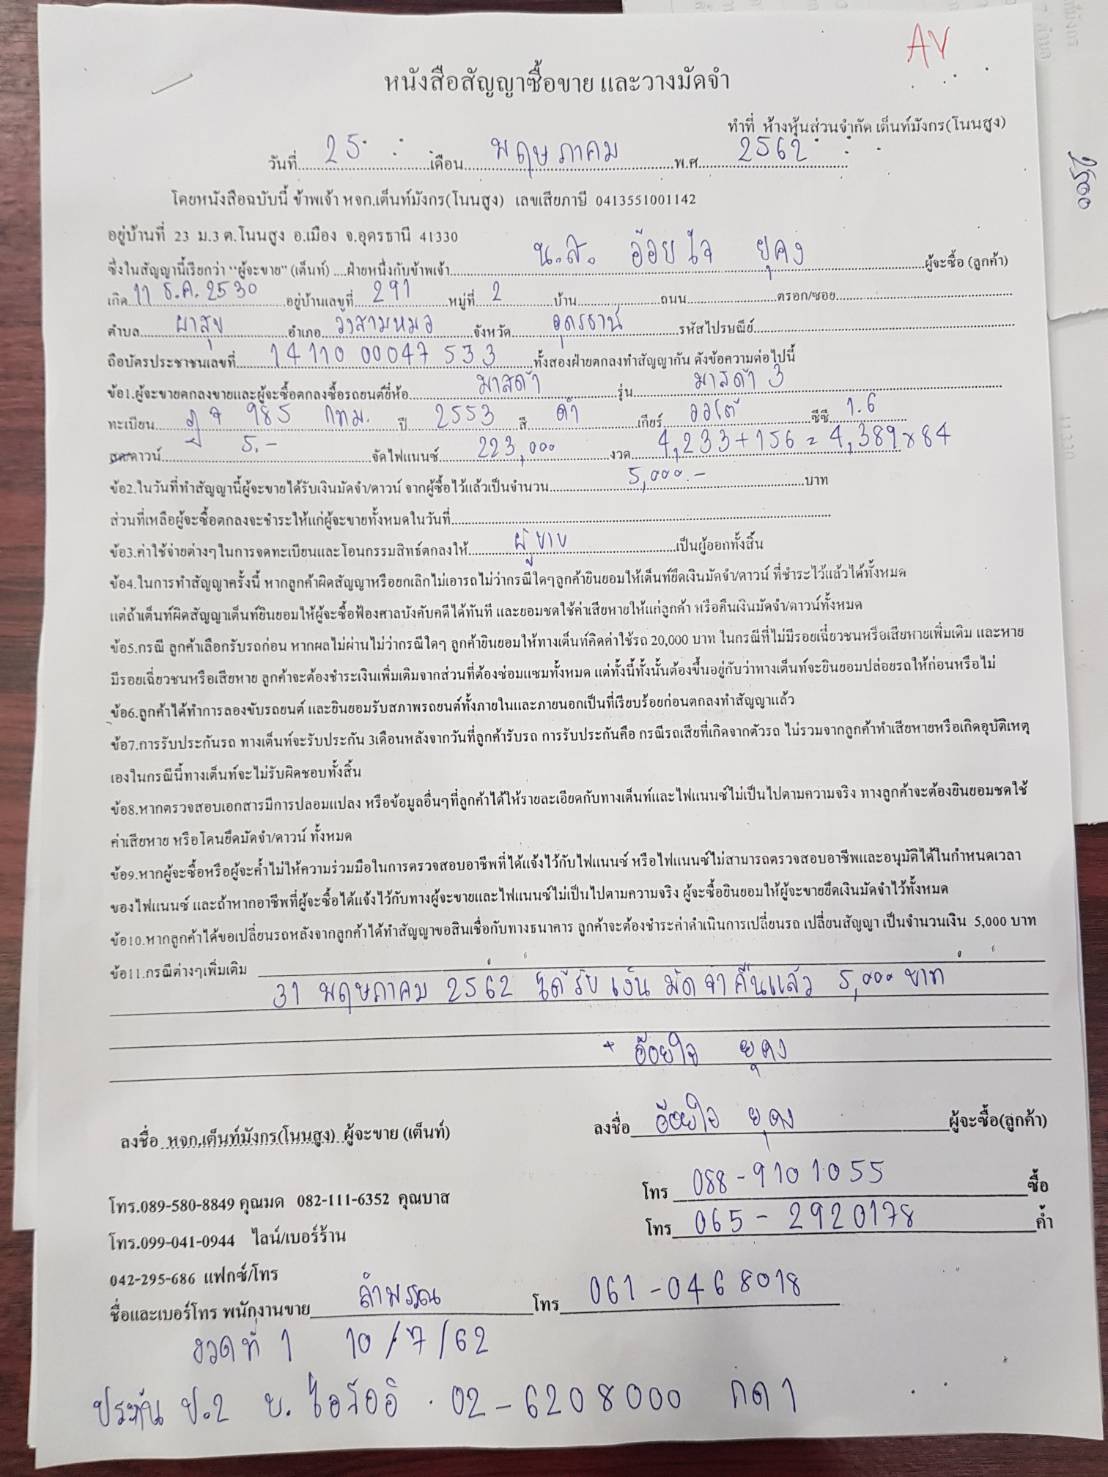 AY
หนังสือสัญญาซื้อขาย และวางมัดจำ
ทำที่ ห้างหุ้นส่วนจำกัด เต็นท์มังกร(โนนสูง)
วันที่ 25 เดือน พฤษภาคม พ.ศ. 2562
โดยหนังสือฉบับนี้ ข้าพเจ้า หจก.เต็นท์มังกร(โนนสูง) เลขเสียภาษี 0413551001142
อยู่บ้านที่ 23 ม.3 ต.โนนสูง อ.เมือง จ.อุดรธานี 41330
ซึ่งในสัญญานี้เรียกว่า "ผู้จะขาย" (เต็นท์) ....ฝ่ายหนึ่งกับข้าพเจ้า น.ส. อ้อยใจ ยุคง ผู้จะซื้อ (ลูกค้า)
เกิด 11 ธ.ค. 2530 อยู่บ้านเลขที่ 291 หมู่ที่ 2 บ้าน ถนน ตรอก/ซอย
ตำบล ผาสุข อำเภอ วังสามหมอ จังหวัด อุดรธานี รหัสไปรษณีย์
ถือบัตรประชาชนเลขที่ 14110 00047 533 ทั้งสองฝ่ายตกลงทำสัญญากัน ดังข้อความต่อไปนี้
ข้อ1.ผู้จะขายตกลงขายและผู้จะซื้อตกลงซื้อรถยนต์ยี่ห้อ มาสด้า รุ่น มาสด้า 3
ทะเบียน ฎจ 985 กทม. ปี 2553 สี ดำ เกียร์ ออโต้ ซีซี 1.6
ดาวน์ 5.- จัดไฟแนนซ์ 223,000 งวด 4,233+156=4,389×84
ข้อ2.ในวันที่ทำสัญญานี้ผู้จะขายได้รับเงินมัดจำ/ดาวน์ จากผู้ซื้อไว้แล้วเป็นจำนวน 5,000.- บาท
ส่วนที่เหลือผู้จะซื้อตกลงจะชำระให้แก่ผู้จะขายทั้งหมดในวันที่
ข้อ3.ค่าใช้จ่ายต่างๆในการจดทะเบียนและโอนกรรมสิทธ์ตกลงให้ ผู้ขาย เป็นผู้ออกทั้งสิ้น
ข้อ4.ในการทำสัญญาครั้งนี้ หากลูกค้าผิดสัญญาหรือยกเลิกไม่เอารถไม่ว่ากรณีใดๆลูกค้ายินยอมให้เต็นท์ยึดเงินมัดจำ/ดาวน์ ที่ชำระไว้แล้วได้ทั้งหมด
แต่ถ้าเต็นท์ผิดสัญญาเต็นท์ยินยอมให้ผู้จะซื้อฟ้องศาลบังคับคดีได้ทันที และยอมชดใช้ค่าเสียหายให้แก่ลูกค้า หรือคืนเงินมัดจำ/ดาวน์ทั้งหมด
ข้อ5.กรณี ลูกค้าเลือกรับรถก่อน หากผลไม่ผ่านไม่ว่ากรณีใดๆ ลูกค้ายินยอมให้ทางเต็นท์คิดค่าใช้รถ 20,000 บาท ในกรณีที่ไม่มีรอยเฉี่ยวชนหรือเสียหายเพิ่มเติม และหาย
มีรอยเฉี่ยวชนหรือเสียหาย ลูกค้าจะต้องชำระเงินเพิ่มเติมจากส่วนที่ต้องซ่อมแซมทั้งหมด แต่ทั้งนี้ทั้งนั้นต้องขึ้นอยู่กับว่าทางเต็นท์จะยินยอมปล่อยรถให้ก่อนหรือไม่
ข้อ6.ลูกค้าได้ทำการลองขับรถยนต์ และยินยอมรับสภาพรถยนต์ทั้งภายในและภายนอกเป็นที่เรียบร้อยก่อนตกลงทำสัญญาแล้ว
ข้อ7.การรับประกันรถ ทางเต็นท์จะรับประกัน 3เดือนหลังจากวันที่ลูกค้ารับรถ การรับประกันคือ กรณีรถเสียที่เกิดจากตัวรถ ไม่รวมจากลูกค้าทำเสียหายหรือเกิดอุบัติเหตุ
เองในกรณีนี้ทางเต็นท์จะไม่รับผิดชอบทั้งสิ้น
ข้อ8.หากตรวจสอบเอกสารมีการปลอมแปลง หรือข้อมูลอื่นๆที่ลูกค้าได้ให้รายละเอียดกับทางเต็นท์และไฟแนนซ์ไม่เป็นไปตามความจริง ทางลูกค้าจะต้องยินยอมชดใช้
ค่าเสียหาย หรือโดนยึดมัดจำ/ดาวน์ ทั้งหมด
ข้อ9.หากผู้จะซื้อหรือผู้จะค้ำไม่ให้ความร่วมมือในการตรวจสอบอาชีพที่ได้แจ้งไว้กับไฟแนนซ์ หรือไฟแนนซ์ไม่สามารถตรวจสอบอาชีพและอนุมัติได้ในกำหนดเวลา
ของไฟแนนซ์ และถ้าหากอาชีพที่ผู้จะซื้อได้แจ้งไว้กับทางผู้จะขายและไฟแนนซ์ไม่เป็นไปตามความจริง ผู้จะซื้อยินยอมให้ผู้จะขายยึดเงินมัดจำไว้ทั้งหมด
ข้อ10.หากลูกค้าได้ขอเปลี่ยนรถหลังจากลูกค้าได้ทำสัญญาขอสินเชื่อกับทางธนาคาร ลูกค้าจะต้องชำระค่าดำเนินการเปลี่ยนรถ เปลี่ยนสัญญา เป็นจำนวนเงิน 5,000 บาท
ข้อ11.กรณีต่างๆเพิ่มเติม
31 พฤษภาคม 2562 ได้รับ เงิน มัดจำคืนแล้ว 5,000 บาท
* อ้อยใจ ยุคง
ลงชื่อ หจก.เต็นท์มังกร(โนนสูง) ผู้จะขาย (เต็นท์) ลงชื่อ อ้อยใจ ยุคง ผู้จะซื้อ(ลูกค้า)
โทร.089-580-8849 คุณมด 082-111-6352 คุณบาส โทร 088-9101055 ซื้อ
โทร.099-041-0944 ไลน์/เบอร์ร้าน โทร 065-2920178 ค้ำ
042-295-686 แฟกซ์/โทร
ชื่อและเบอร์โทร พนักงานขาย ลำพรรณ โทร 061-0468018
งวดที่ 1 10/7/62
ประกัน ป.2 บ. ไอร์ออิ . 02-6208000 กด 1